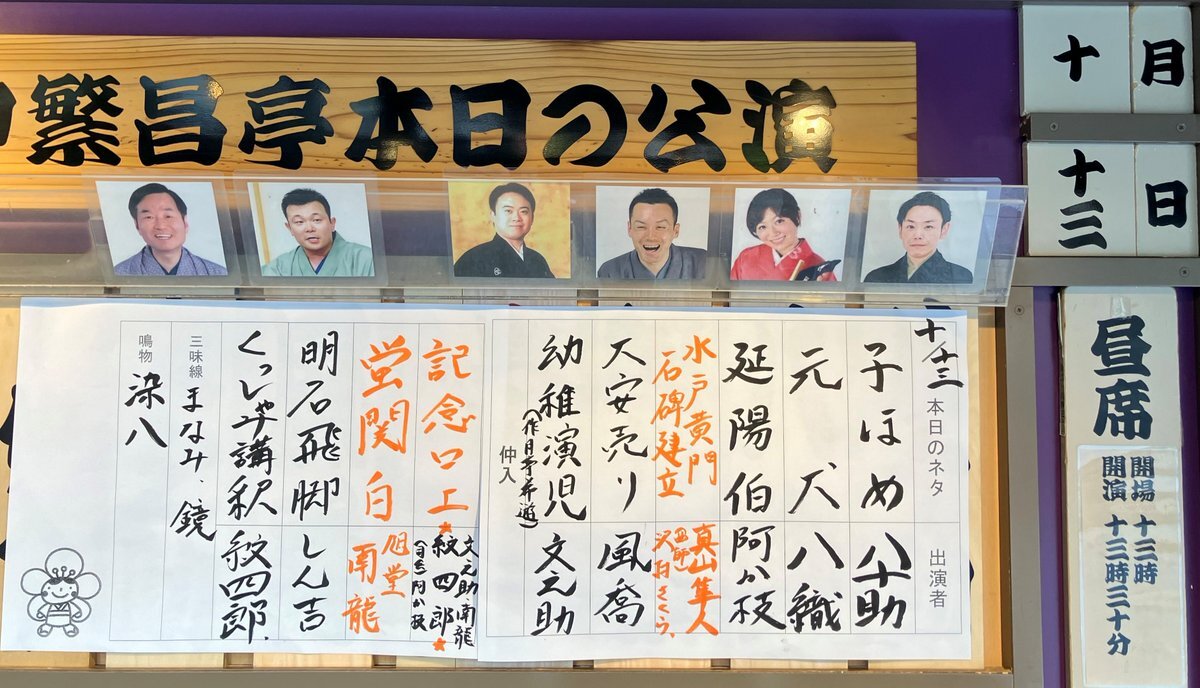 繁昌亭本日の公演
十月
十三日
昼席
開場 十三時
開演 十三時三十分
十/十三 本日のネタ 出演者
子ほめ 八十助
元犬 八織
延陽伯 阿か枝
水戸黄門 真山隼人
石碑建立 曲師 沢村さくら
大安売り 風喬
幼稚演児 文之助
(作 月亭希遊)
仲入
記念口上 文之助・南龍
★紋四郎★
(司会)阿か枝
蛍関白 旭堂南龍
明石飛脚 しん吉
くっしゃみ講釈 紋四郎
三味線 まなみ、鏡
鳴物 染八